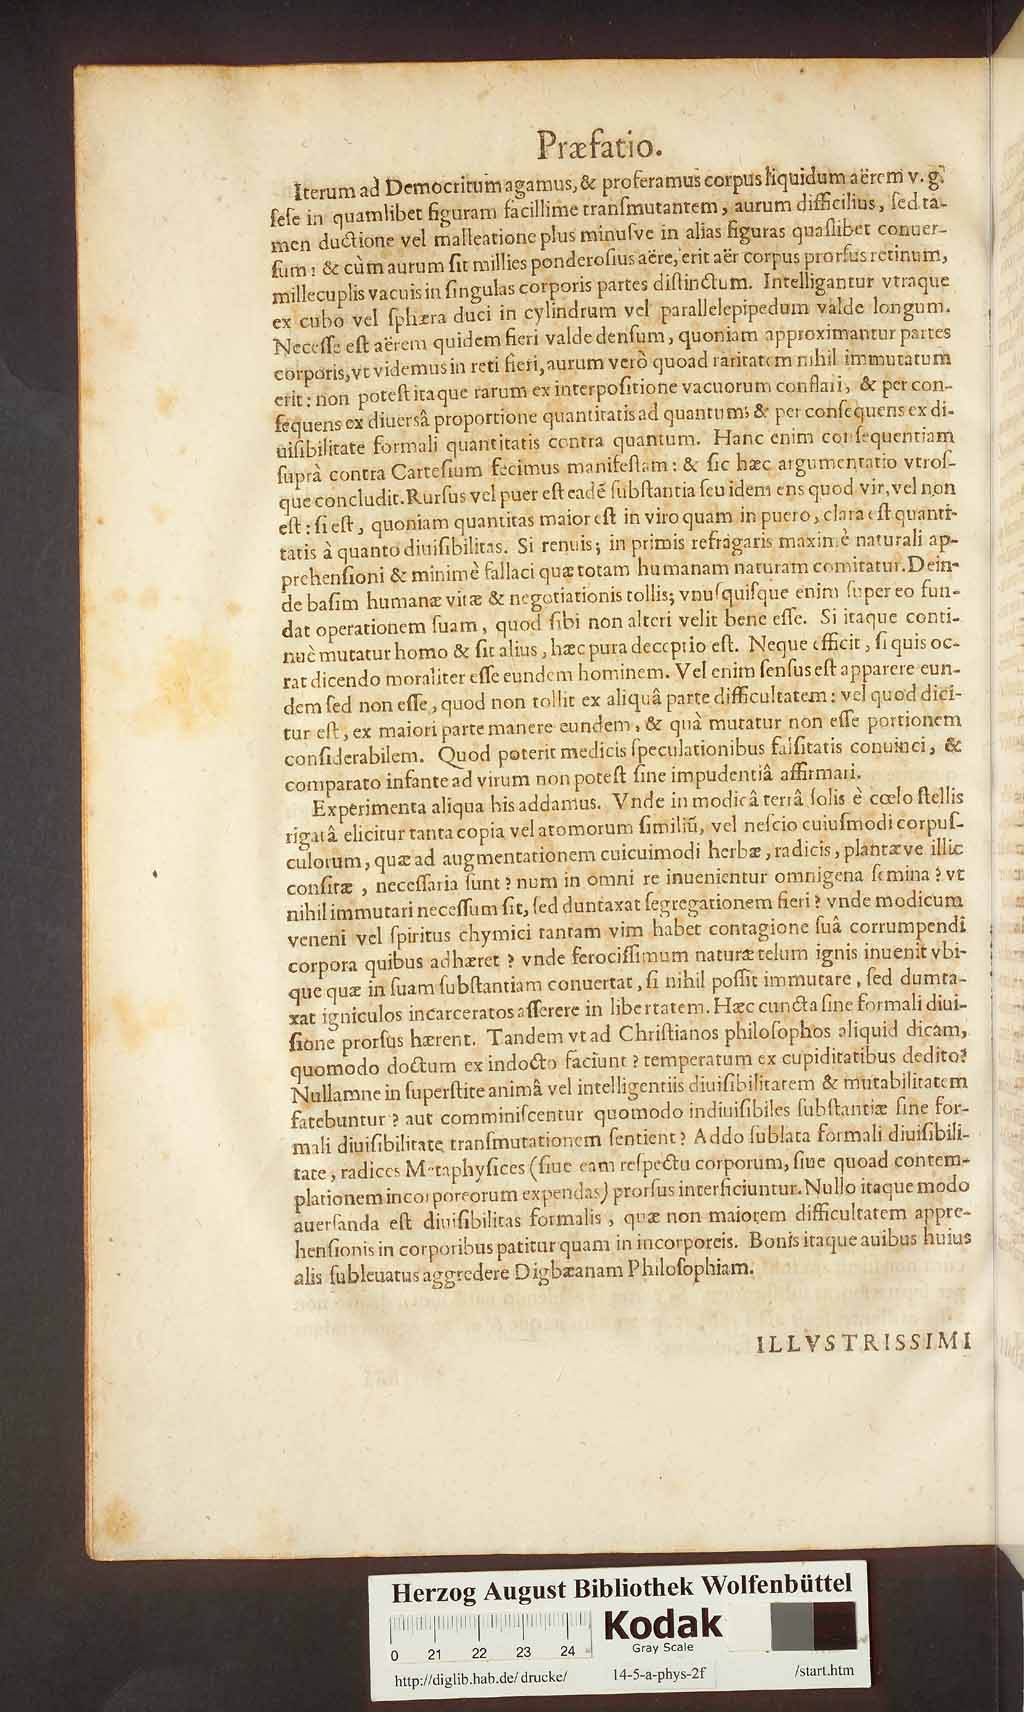 Præfatio.
Iterum ad Democritum agamus, & proferamus corpus liquidum aërem v. g.
ſeſe in quamlibet figuram facillime tranſmutantem, aurum difficilius, ſed ta-
men ductione vel malleatione plus minuſve in alias figuras quaſlibet conuer-
ſum: & cùm aurum ſit millies ponderoſius aëre, erit aër corpus prorſus retinum,
millecuplis vacuis in ſingulas corporis partes diſtinctum. Intelligantur vtraque
ex cubo vel ſphæra duci in cylindrum vel parallelepipedum valde longum.
Neceſſe eſt aërem quidem fieri valde denſum, quoniam approximantur partes
corporis, vt videmus in reti fieri, aurum verò quoad raritatem nihil immutatum
erit: non poteſt itaque rarum ex interpoſitione vacuorum conflari, & per con-
ſequens ex diuersâ proportione quantitatis ad quantum; & per conſequens ex di-
uiſibilitate formali quantitatis contra quantum. Hanc enim conſequentiam
ſuprà contra Carteſium fecimus manifeſtam: & ſic hæc argumentatio vtroſ-
que concludit. Rurſus vel puer eſt eadē ſubſtantia ſeu idem ens quod vir, vel non
eſt: ſi eſt, quoniam quantitas maior eſt in viro quam in puero, clara eſt quanti-
tatis à quanto diuiſibilitas. Si renuis; in primis refragaris maximè naturali ap-
prehenſioni & minimè fallaci quæ totam humanam naturam comitatur. Dein-
de baſim humanæ vitæ & negotiationis tollis; vnuſquiſque enim ſuper eo fun-
dat operationem ſuam, quod ſibi non alteri velit bene eſſe. Si itaque conti-
nuè mutatur homo & ſit alius, hæc pura deceptio eſt. Neque efficit, ſi quis oc-
rat dicendo moraliter eſſe eundem hominem. Vel enim ſenſus eſt apparere eun-
dem ſed non eſſe, quod non tollit ex aliquâ parte difficultatem: vel quod dici-
tur eſt, ex maiori parte manere eundem, & quà mutatur non eſſe portionem
conſiderabilem. Quod poterit medicis ſpeculationibus falſitatis conuinci, &
comparato infante ad virum non poteſt ſine impudentiâ affirmari.
Experimenta aliqua his addamus. Vnde in modicâ terrâ ſolis è cœlo ſtellis
rigatâ elicitur tanta copia vel atomorum ſimiliū, vel neſcio cuiuſmodi corpuſ-
culorum, quæ ad augmentationem cuicuimodi herbæ, radicis, plantæve illic
conſitæ, neceſſaria ſunt? num in omni re inuenientur omnigena ſemina? vt
nihil immutari neceſſum ſit, ſed duntaxat ſegregationem fieri? vnde modicum
veneni vel ſpiritus chymici tantam vim habet contagione ſuâ corrumpendi
corpora quibus adhæret? vnde ferociſſimum naturæ telum ignis inuenit vbi-
que quæ in ſuam ſubſtantiam conuertat, ſi nihil poſſit immutare, ſed dumta-
xat igniculos incarceratos aſſerere in libertatem. Hæc cuncta ſine formali diui-
ſione prorſus hærent. Tandem vt ad Chriſtianos philoſophos aliquid dicam,
quomodo doctum ex indocto faciunt? temperatum ex cupiditatibus dedito?
Nullamne in ſuperſtite animâ vel intelligentiis diuiſibilitatem & mutabilitatem
fatebuntur? aut comminiſcentur quomodo indiuiſibiles ſubſtantiæ ſine for-
mali diuiſibilitate tranſmutationem ſentient? Addo ſublata formali diuiſibili-
tate, radices Metaphyſices (ſiue eam reſpectu corporum, ſiue quoad contem-
plationem incorporeorum expendas) prorſus interficiuntur. Nullo itaque modo
auerſanda eſt diuiſibilitas formalis, quæ non maiorem difficultatem appre-
henſionis in corporibus patitur quam in incorporeis. Bonis itaque auibus huius
alis ſubleuatus aggredere Digbæanam Philoſophiam.
ILLVSTRISSIMI
Herzog August Bibliothek Wolfenbüttel
Kodak
Gray Scale
0 21 22 23 24
http://diglib.hab.de/drucke/ 14-5-a-phys-2f /start.htm